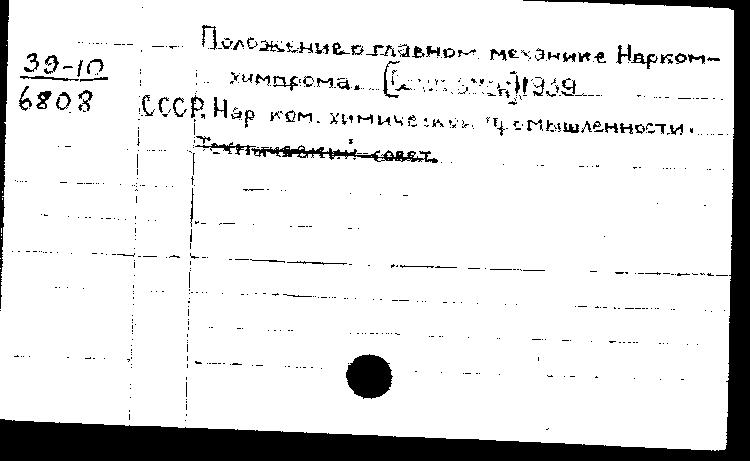 39-10
6808
Положение о главном механике Нарком-
химпрома. 1939
СССР. Нар ком. химической промышленности.
Технический совет.